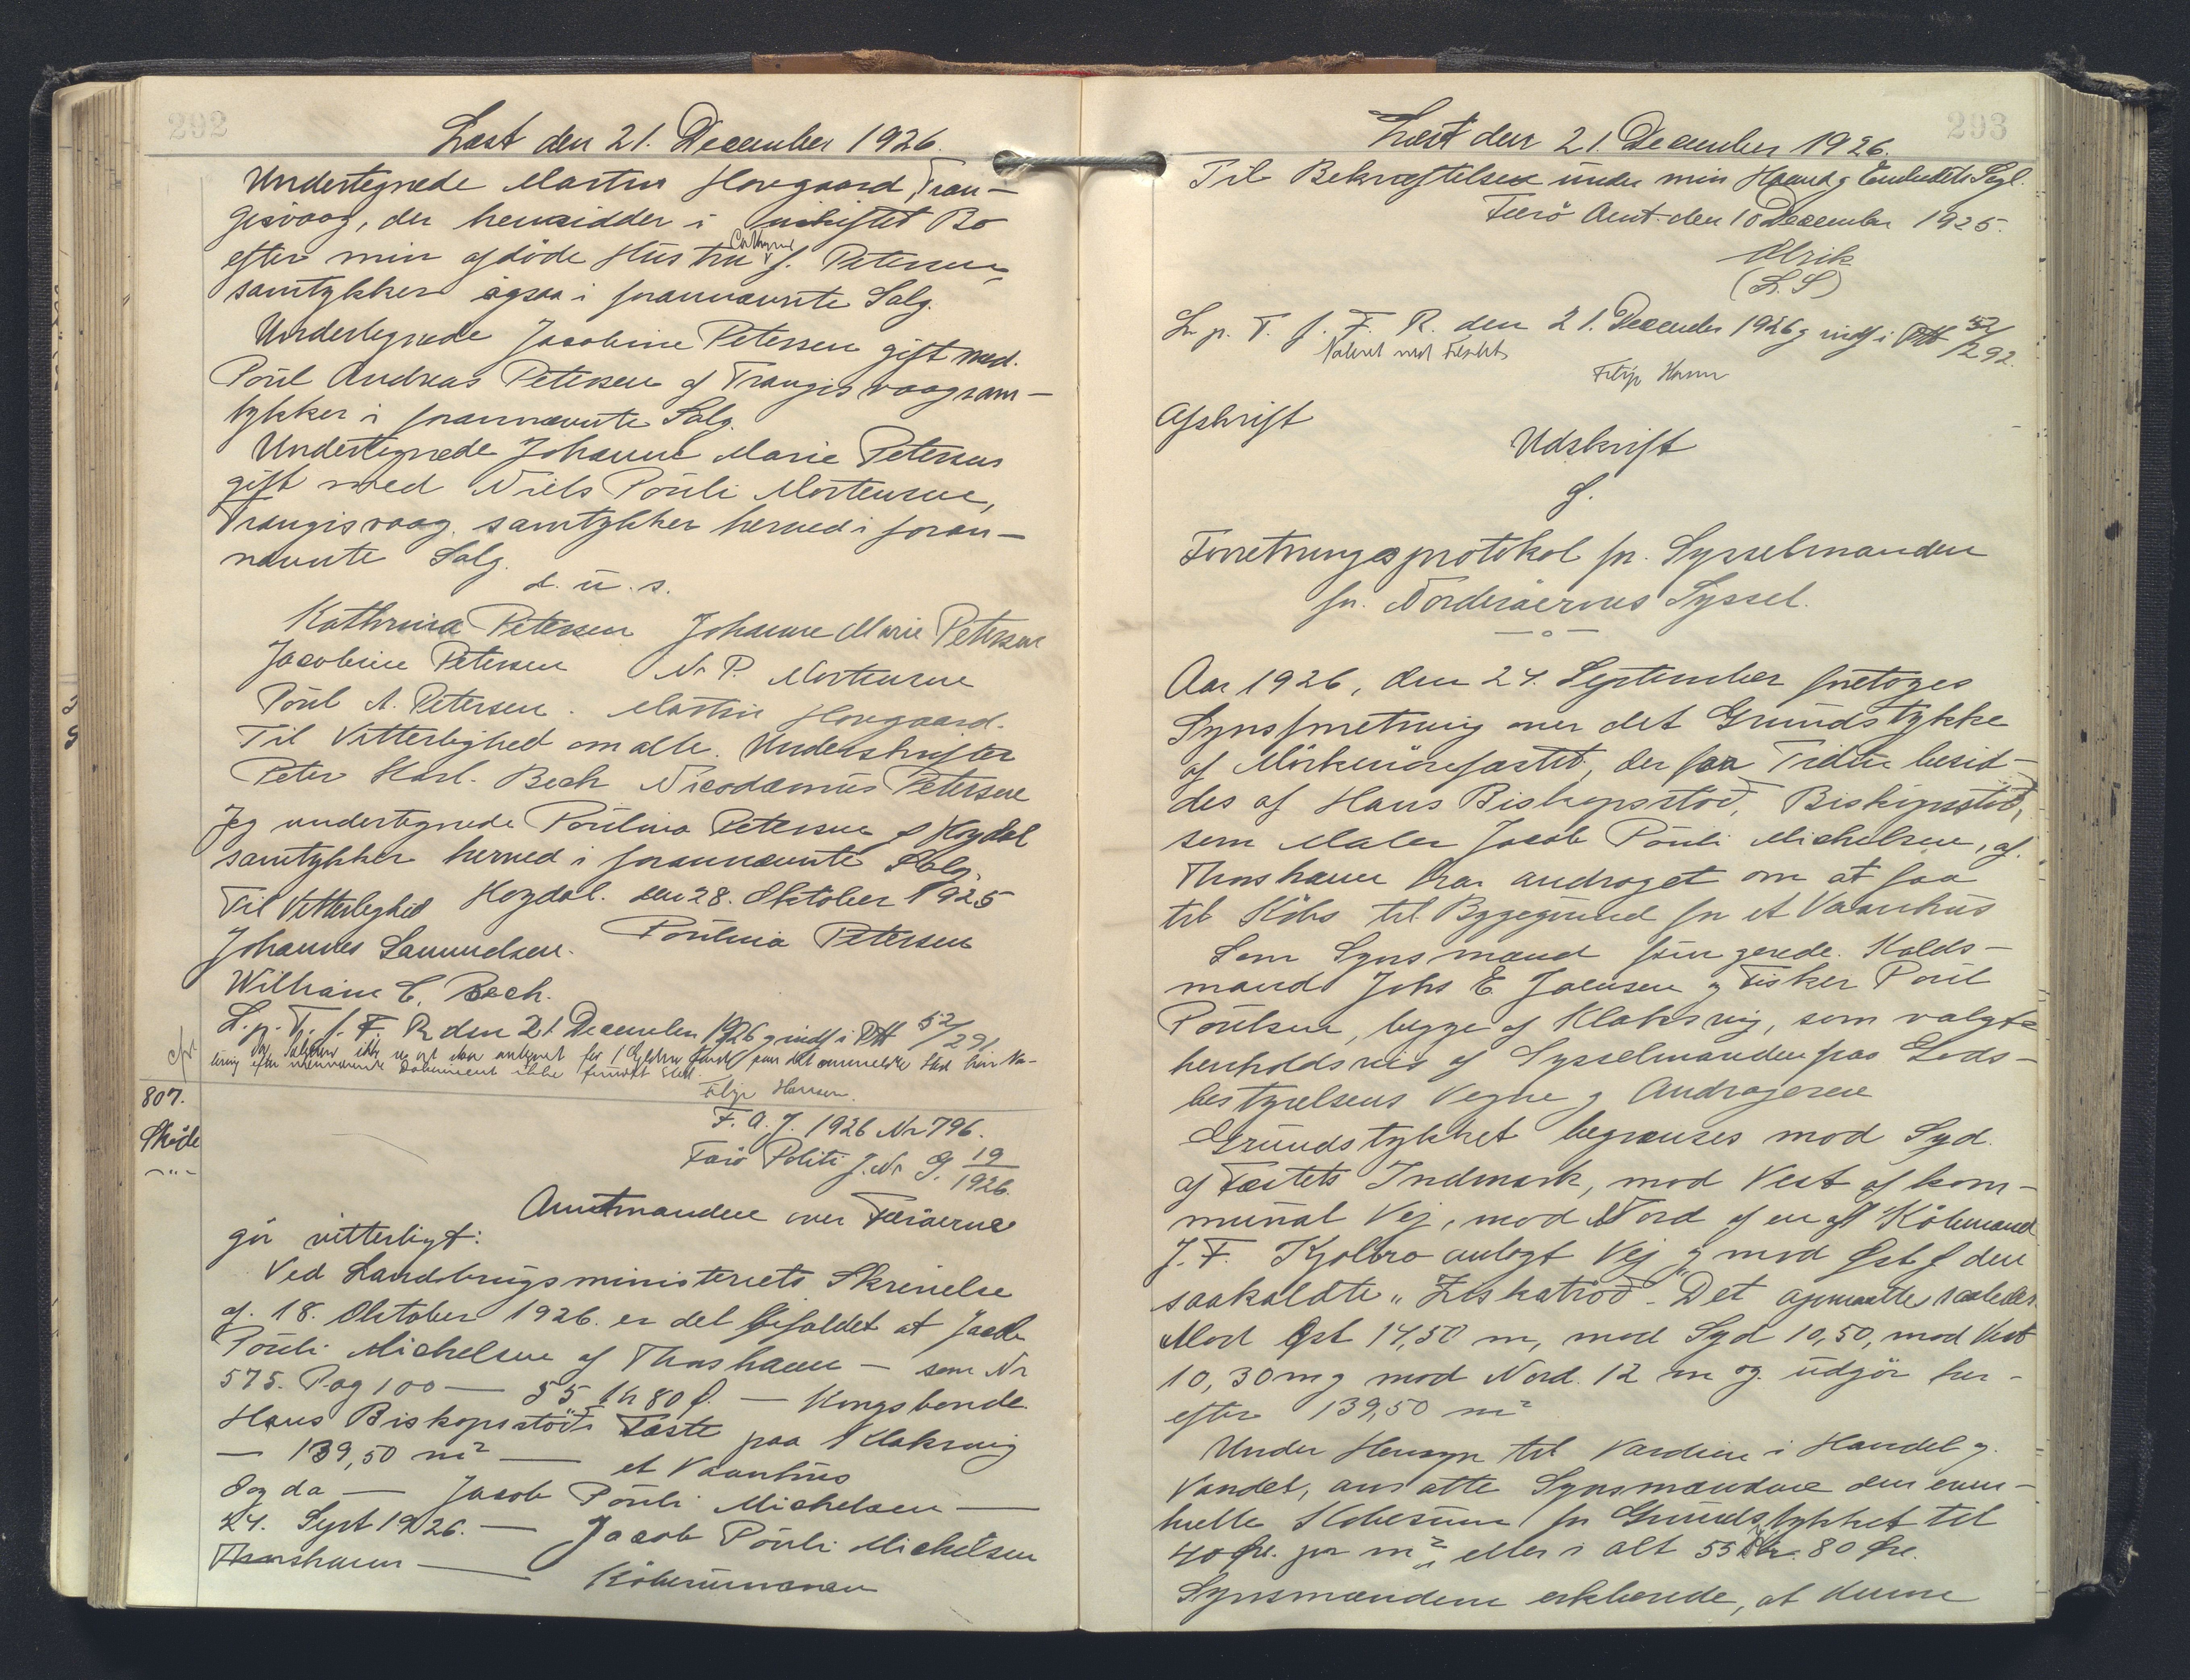 292
Læst den 21. December 1926.
Undertegnede Martin Hovgaard, Tran-
gisvaag, der hensidder i uskiftet Bo
efter min afdöde Hustru f. Petersen,
samtykker ogsaa i forannævnte Salg.
Undertegnede Jacobine Petersen gift med
Poul Andreas Petersen af Trangisvaag sam-
tykker i forannævnte Salg.
Undertegnede Johanne Marie Petersen
gift med Niels Pouli Mortensen,
Trangisvaag, samtykker herved i foran-
nævnte Salg.
d. u. s.
Kathrina Petersen Johanne Marie Petersen
Jacobine Petersen N. P. Mortensen
Poul A. Petersen. Martin Hovgaard.
Til Vitterlighed om alle Underskrifter
Peter Karl. Bech Nicodæmus Petersen
Jeg undertegnede Poulina Petersen af Hogdal
samtykker herved i forannævnte Salg.
Hogdal. den 28. Oktober 1925
Til Vitterlighed
Poulina Petersen
Johannes Samuelsen.
William C. Bech.
L. p. T. f. F. R den 21 December 1926 g indf i Ptk 52/291
Filip Hansen.
807.
Skøde
F. A. J. 1926 Nr 796.
Færö Politi J. Nr G. 19/1926.
Amtmanden over Færöerne
gör vitterligt:
Ved Landbrugsministeriets Skrivelse
af 18. Oktober 1926 er det bifaldet at Jacob
Pouli Michelsen af Thorshavn – som Nr
575. Pag 100 – 55 Kr 80 Ø. – Kongsbonde
Hans Biskopsstöðs Fæste paa Klaksvig
– 139,50 m² – et Vaanhus
Og da – Jacob Pouli Michelsen –
24. Sept 1926. – Jacob Pouli Michelsen
Thorshavn – Köbesummen
293
Læst den 21. December 1926.
Til Bekræftelse under min Haand g Embedets Segl.
Færö Amt. den 10 December 1925.
Ulrik
(L. S)
L. p. T. f. F. R. den 21. December 1926 g indf i Ptk 52/292.
Filip Hansen
Afskrift
Udskrift
af
Forretningsprotokol for Sysselmanden
for Norderöernes Syssel.
Aar 1926, den 24. September foretoges
Synsforretning over det Grundstykke
af Mörkeuörefæstet, der for Tiden besid-
des af Hans Biskopsstöð, Biskopsstöð,
som Maler Jacob Pouli Michelsen, af
Thorshavn har andraget om at faa
til Köbs til Byggegrund for et Vaanhus
Som Synsmænd fungerede Kolds-
mand Johs E. Joensen g Fisker Poul
Poulsen, begge af Klaksvig, som valgte
henholdsvis af Sysselmanden paa Gods-
bestyrelsens Vegne g Andrageren
Grundstykket begrænses mod Syd
af Fæstets Indmark, mod Vest af kom-
munal Vej, mod Nord af en af Köbmand
J. F. Kjölbro anlagt Vej g mod Øst af den
saakaldte "Fiskatröð". Det opmaaltes saaledes:
Mod Øst 14,50 m, mod Syd 10,50, mod Vest
10,30 m g mod Nord 12 m og udgör her-
efter 139,50 m²
Under Hensyn til Værdien i Handel g
Vandel, ansatte Synsmændene den even-
tuelle Köbesum for Grundstykket til
40 Øre. pr m², eller i alt 55 Kr. 80 Øre.
Synsmændene erklærede, at denne